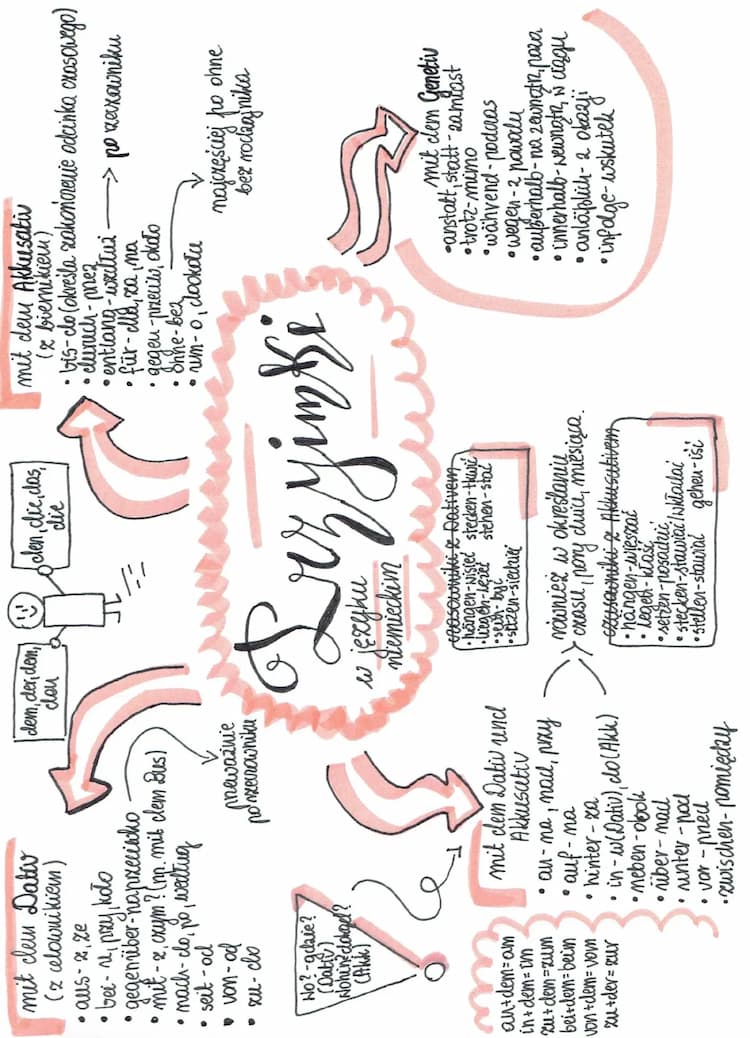 Przyimki
w języku
niemieckim
mit dem Dativ
(z celownikiem)
• aus - z, ze
• bei - u, przy, koło
• gegenüber - naprzeciwko
• mit - z czym? (np. mit dem Bus)
• nach - do, po, według
• seit - od
• von - od
• zu - do
przeważnie
po rzeczowniku
dem, der, dem,
den
den, die, das,
die
mit dem Akkusativ
(z biernikiem)
• bis - do (określa zakończenie odcinka czasowego)
• durch - przez
• entlang - wzdłuż → po rzeczowniku
• für - dla, za, na
• gegen - przeciw, około
• ohne - bez
• um - o, dookoła
najczęściej po ohne
bez rodzajnika
Wo? - gdzie?
(Dativ)
Wohin? dokąd?
(Akk)
mit dem Dativ und
Akkusativ
• an - na, nad, przy
• auf - na
• hinter - za
• in - w (Dativ), do (Akk)
• neben - obok
• über - nad
• unter - pod
• vor - przed
• zwischen - pomiędzy
an + dem = am
in + dem = im
zu + dem = zum
bei + dem = beim
von + dem = vom
zu + der = zur
czasowniki z Dativem
• hängen - wisieć stecken - tkwić
• liegen - leżeć stehen - stać
• sein - być
• sitzen - siedzieć
również w określaniu
czasu, pory dnia, miesiąca.
czasowniki z Akkusativem
• hängen - wieszać
• legen - kłaść
• setzen - posadzić
• stecken - wkładać
• stellen - stawiać gehen - iść
mit dem Genetiv
• anstatt, statt - zamiast
• trotz - mimo
• während - podczas
• wegen - z powodu
• außerhalb - na zewnątrz, poza
• innerhalb - wewnątrz, w ciągu
• anläßlich - z okazji
• infolge - wskutek